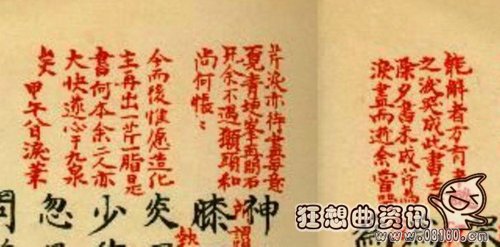 能解者方有
之淚哭成此書
除夕書未成芹為
淚盡而逝余嘗
芹淚亦待盡每意
覓青埂峯再問石
兄余不遇獺頭和
尚何悵〻
今而後惟愿造化
主再出一芹一脂是
書何本余二人亦
大快遂心于九泉
矣 甲午八日淚筆
神
膝
炎
少
忽
狂想曲资讯
www.08160.com